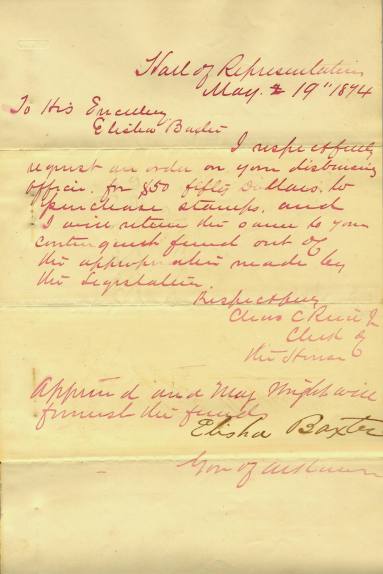 Hall of Representatives
May. 19" 1874
To His Excellency
Elisha Baxter
I respectfully
request an order on your disbursing
officer. for $50 fifty Dollars. to
purchase stamps, and
I will return the same to your
contingent fund out of
the appropriation made by
the Legislature.
Respectfully
Chas C Reid Jr
Clerk of
the House
Approved and May Wright will
furnish the funds
Elisha Baxter
Gov of Arkansas